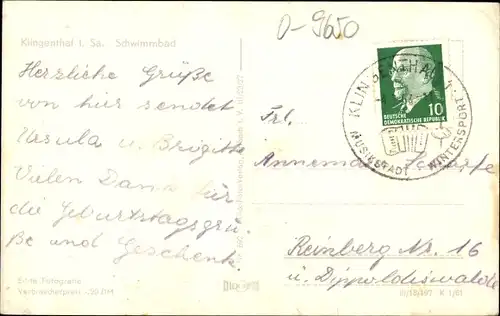 Klingenthal i. Sa. Schwimmbad
0-9650
Herzliche Grüße
von hier sendet
Ursula u. Brigitte
Vielen Dank für
die Geburtstagsgrü-
ße und Geschenk.
Echte Fotografie
KLINGENTHAL
MUSIKSTADT WINTERSPORT
10
DEUTSCHE
DEMOKRATISCHE REPUBLIK
Frl.
Annemarie
Reinberg Nr. 16
ü. Dippoldiswalde
III/18/197 K 1/61